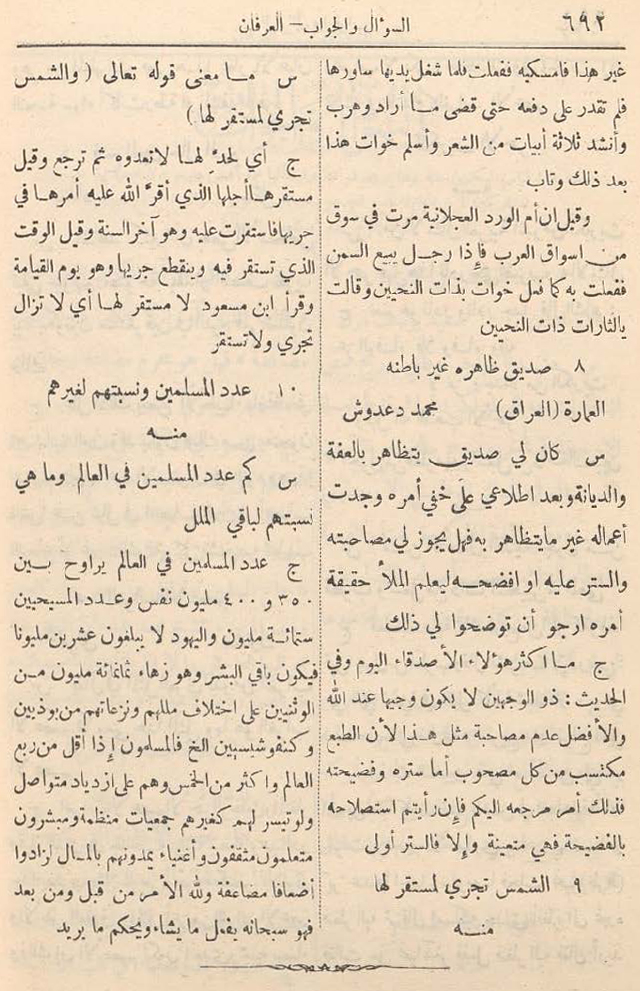 ٦٩٢
السؤال والجواب – العرفان
غير هذا فامسكيه ففعلت فلما شغل يديها ساورها
فلم تقدر على دفعه حتى قضى ما أراد وهرب
وأنشد ثلاثة أبيات من الشعر وأسلم خوات هذا
بعد ذلك وتاب
وقيل ان أم الورد العجلانية مرت في سوق
من اسواق العرب فإذا رجل يبيع السمن
ففعلت به كما فعل خوات بذات النحيين وقالت
يالثارات ذات النحيين
٨ صديق ظاهره غير باطنه
العمارة (العراق) محمد دعدوش
س كان لي صديق يتظاهر بالعفة
والديانة وبعد اطلاعي على خفي أمره وجدت
أعماله غير ما يتظاهر به فهل يجوز لي مصاحبته
والستر عليه او افضحه ليعلم الملأ حقيقة
أمره ارجو أن توضحوا لي ذلك
ج ما اكثر هؤلاء الأصدقاء اليوم وفي
الحديث : ذو الوجهين لا يكون وجيها عند الله
والأفضل عدم مصاحبة مثل هذا لأن الطبع
مكتسب من كل مصحوب أما ستره وفضيحته
فذلك أمر مرجعه اليكم فإن رأيتم استصلاحه
بالفضيحة فهي متعينة وإلا فالستر أولى
٩ الشمس تجري لمستقر لها
منه
س ما معنى قوله تعالى ( والشمس
تجري لمستقر لها )
ج أي لحدٍّ لها لا تعدوه ثم ترجع وقيل
مستقرها أجلها الذي أقرَّ الله عليه أمرها في
جريها فاستقرت عليه وهو آخر السنة وقيل الوقت
الذي تستقر فيه وينقطع جريها وهو يوم القيامة
وقرأ ابن مسعود لا مستقر لها أي لا تزال
تجري ولا تستقر
١٠ عدد المسلمين ونسبتهم لغيرهم
منه
س كم عدد المسلمين في العالم وما هي
نسبتهم لباقي الملل
ج عدد المسلمين في العالم يراوح بين
٣٥٠ و ٤٠٠ مليون نفس وعدد المسيحيين
ستمائة مليون واليهود لا يبلغون عشرين مليونا
فيكون باقي البشر وهو زهاء ثمانمائة مليون من
الوثنيين على اختلاف مللهم ونزعاتهم من بوذيين
وكنفوشيسيين الخ فالمسلمون إذا أقل من ربع
العالم واكثر من الخمس وهم على ازدياد متواصل
ولو تيسر لهم كغيرهم جمعيات منظمة ومبشرون
متعلمون مثقفون وأغنياء يمدونهم بالمال لزادوا
أضعافا مضاعفة ولله الأمر من قبل ومن بعد
فهو سبحانه يفعل ما يشاء ويحكم ما يريد